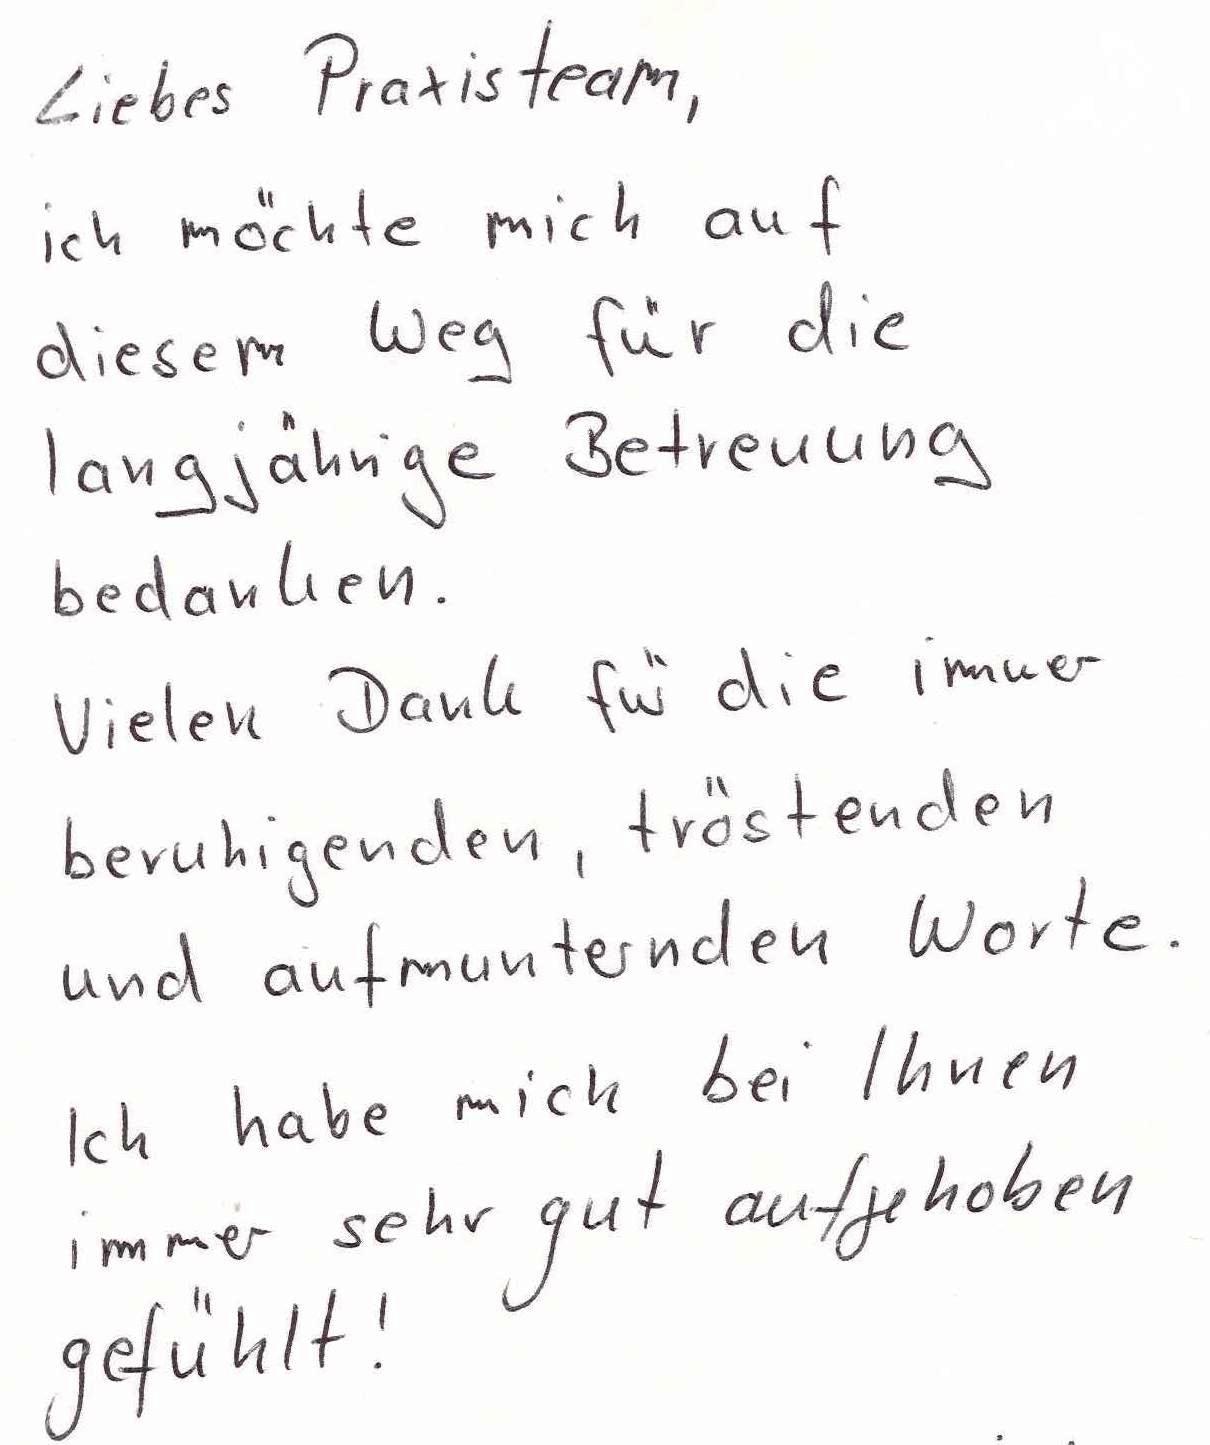 Liebes Praxisteam,
ich möchte mich auf
diesem Weg für die
langjährige Betreuung
bedanken.
Vielen Dank für die immer
beruhigenden, tröstenden
und aufmunternden Worte.
Ich habe mich bei Ihnen
immer sehr gut aufgehoben
gefühlt!